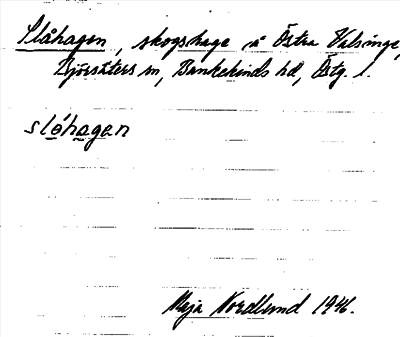 Slåhagen, skogshage å Östra Valsinge,
Björsäters sn, Bankekinds hd, Östg. l.
slåhagen
Maja Nordlund 1946.